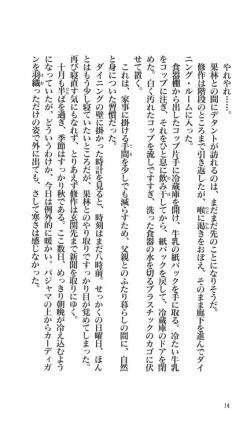 やれやれ……。
果林との間にデタントが訪れるのは、まだまだ先のことになりそうだ。
修作は階段のところまで引き返したが、喉に渇きをおぼえ、そのまま廊下を進んでダイ
ニング・ルームに入った。
食器棚から出したコップ片手に冷蔵庫を開け、牛乳の紙パックを手に取る。冷たい牛乳
をコップに注ぎ、それをひと息に飲み干してから、紙パックを戻して、冷蔵庫のドアを閉
めた。白く汚れたコップを流しですすぎ、洗った食器の水を切るプラスチックのカゴに伏
せて置く。
これは、家事に掛ける手間を少しでも減らすため、父親とのふたり暮らしの間に、自然
と身についた習慣だった。
ダイニングの壁に掛かった時計を見ると、時刻はまだ八時前。せっかくの日曜日、ほん
とはもう少し寝ていたいところだが、果林とのやり取りですっかり目が覚めてしまった。
再び寝直す気にもなれず、とりあえず修作は玄関先まで新聞を取りに行く。
十月も半ばを過ぎ、季節はすっかり秋である。ここ数日、めっきり朝晩が冷え込むよう
になっていたが、どういうわけか、今日は例外的に暖かい。パジャマの上からカーディガ
ンを羽織っただけの姿で外に出ても、さして寒さは感じなかった。
14